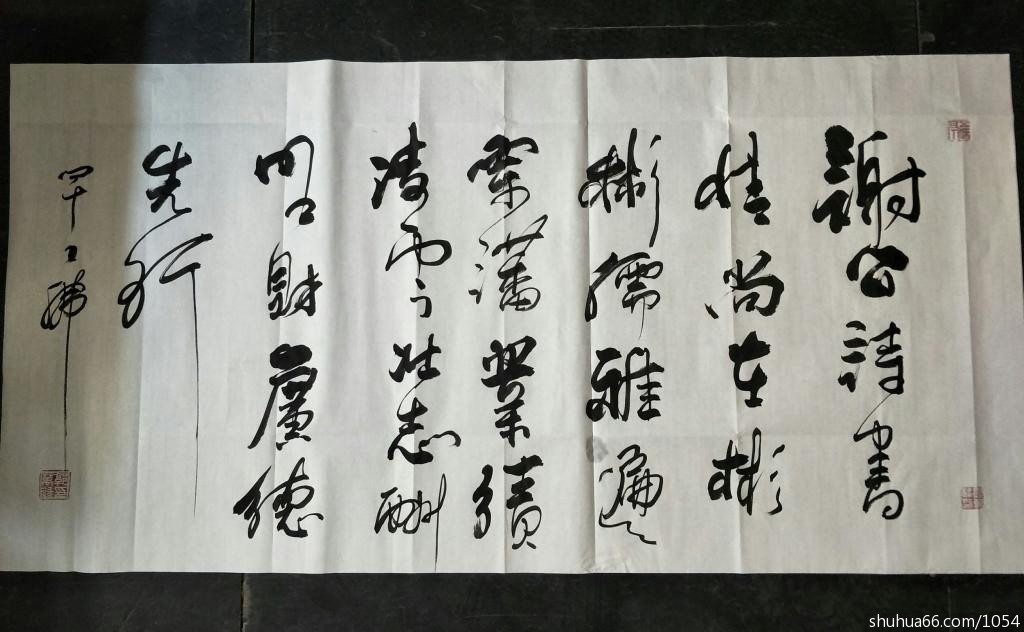 謝公詩書
情尚在彬
彬儒雅遍
業績
凌雲壯志酬
財廣德
先行
shuhua66.com/1054